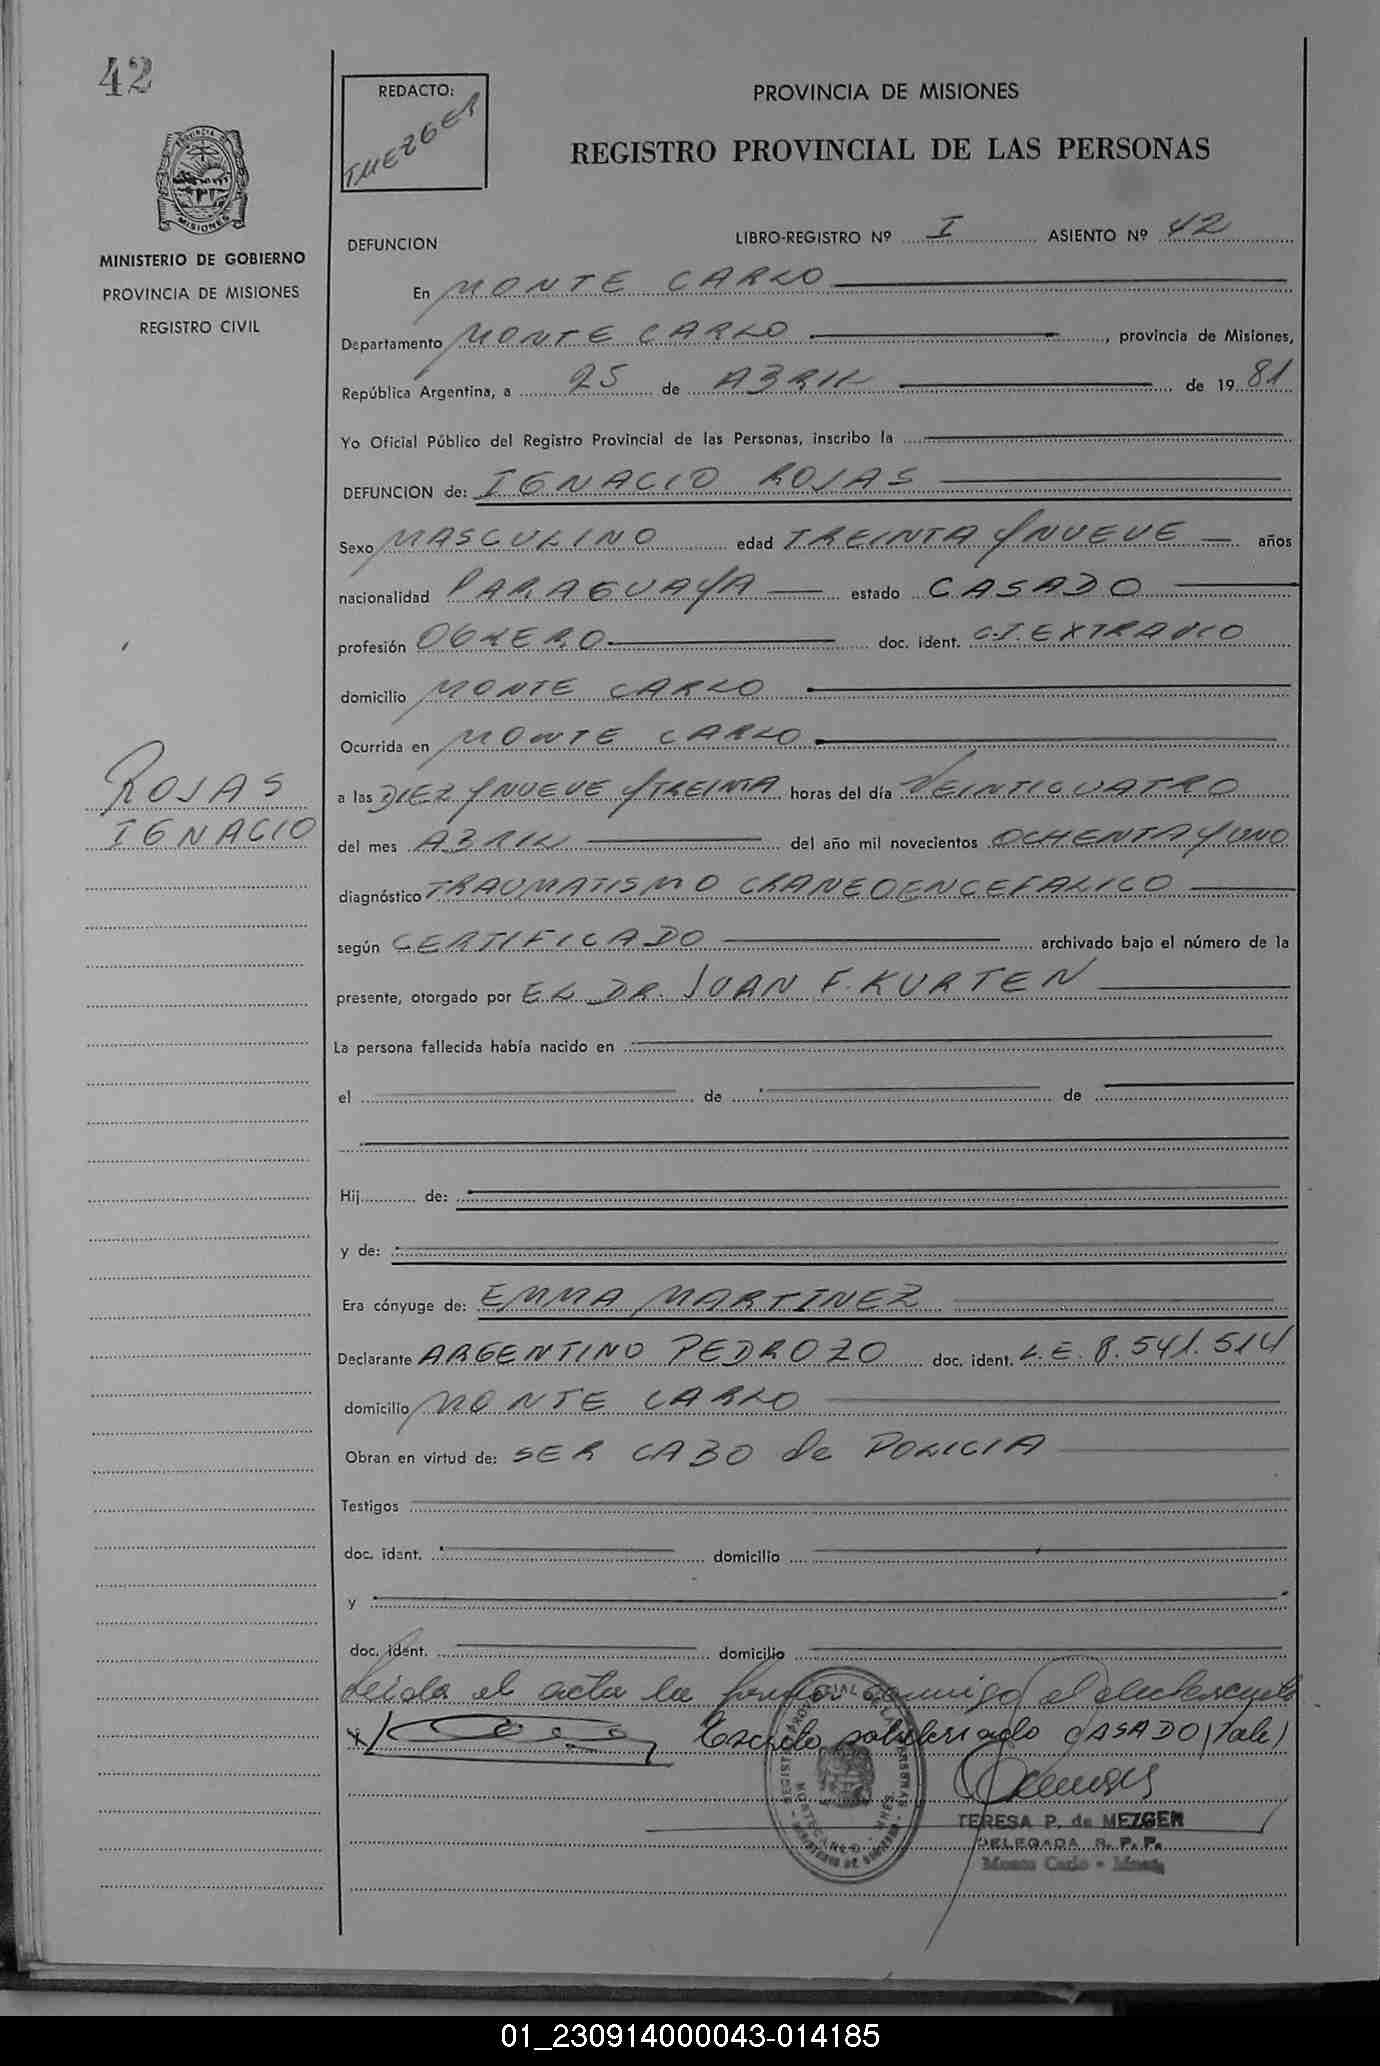 42
REDACTO:
PROVINCIA DE MISIONES
REGISTRO PROVINCIAL DE LAS PERSONAS
MISIONES
MINISTERIO DE GOBIERNO
PROVINCIA DE MISIONES
REGISTRO CIVIL
DEFUNCION
LIBRO-REGISTRO Nº I ASIENTO Nº 42
En MONTE CARLO
Departamento MONTE CARLO, provincia de Misiones,
República Argentina, a 25 de ABRIL de 1981
Yo Oficial Público del Registro Provincial de las Personas, inscribo la
DEFUNCION de: IGNACIO ROJAS
Sexo MASCULINO edad TREINTA Y NUEVE años
nacionalidad PARAGUAYA estado CASADO
profesión OBRERO doc. ident. C.I. EXTRAVIO
domicilio MONTE CARLO
Ocurrida en MONTE CARLO
ROJAS
IGNACIO
a las DIEZ Y NUEVE Y TREINTA horas del día VEINTICUATRO
del mes ABRIL del año mil novecientos OCHENTA Y UNO
diagnóstico TRAUMATISMO CRANEOENCEFALICO
según CERTIFICADO archivado bajo el número de la
presente, otorgado por EL DR. JUAN F. KURTEN
La persona fallecida había nacido en
el de de
Hij de:
y de:
Era cónyuge de: EMMA MARTINEZ
Declarante ARGENTINO PEDROZO doc. ident. L.E. 8.541.514
domicilio MONTE CARLO
Obran en virtud de: SER CABO de POLICIA
Testigos
doc. ident. domicilio
y
doc. ident. domicilio
Leida el acta la firma conmigo el declarante
Escrito sobreborrado CASADO (Vale)
TERESA P. de MEZGER
DELEGADA R. P. P.
Monte Carlo - Mnes.
01_230914000043-014185